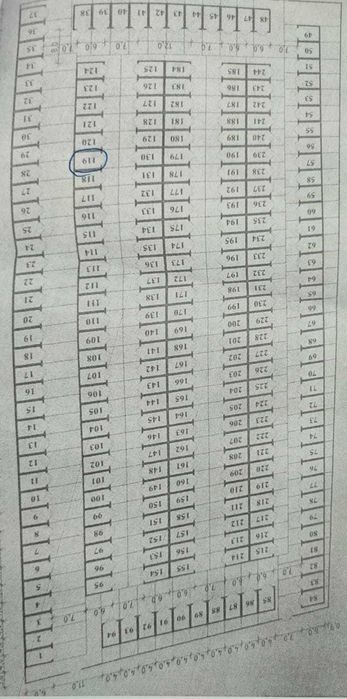 38 39 40 41 42 43 44 45 46 47 48
7,0 6,0 7,0 12,0 7,0 6,0 7,0
37
36
35
34
33
32
31
30
29
28
27
26
25
24
23
22
21
20
19
18
17
16
15
14
13
12
11
10
9
8
7
6
5
4
3
2
1
124 125 184 185 244
123 126 183 186 243
122 127 182 187 242
121 128 181 188 241
120 129 180 189 240
119 130 179 190 239
118 131 178 191 238
117 132 177 192 237
116 133 176 193 236
115 134 175 194 235
114 135 174 195 234
113 136 173 196 233
112 137 172 197 232
111 138 171 198 231
110 139 170 199 230
109 140 169 200 229
108 141 168 201 228
107 142 167 202 227
106 143 166 203 226
105 144 165 204 225
104 145 164 205 224
103 146 163 206 223
102 147 162 207 222
101 148 161 208 221
100 149 160 209 220
99 150 159 210 219
98 151 158 211 218
97 152 157 212 217
96 153 156 213 216
95 154 155 214 215
49
50
51
52
53
54
55
56
57
58
59
60
61
62
63
64
65
66
67
68
69
70
71
72
73
74
75
76
77
78
79
80
81
82
83
84
94 93 92 91 90 89 88 87 86 85